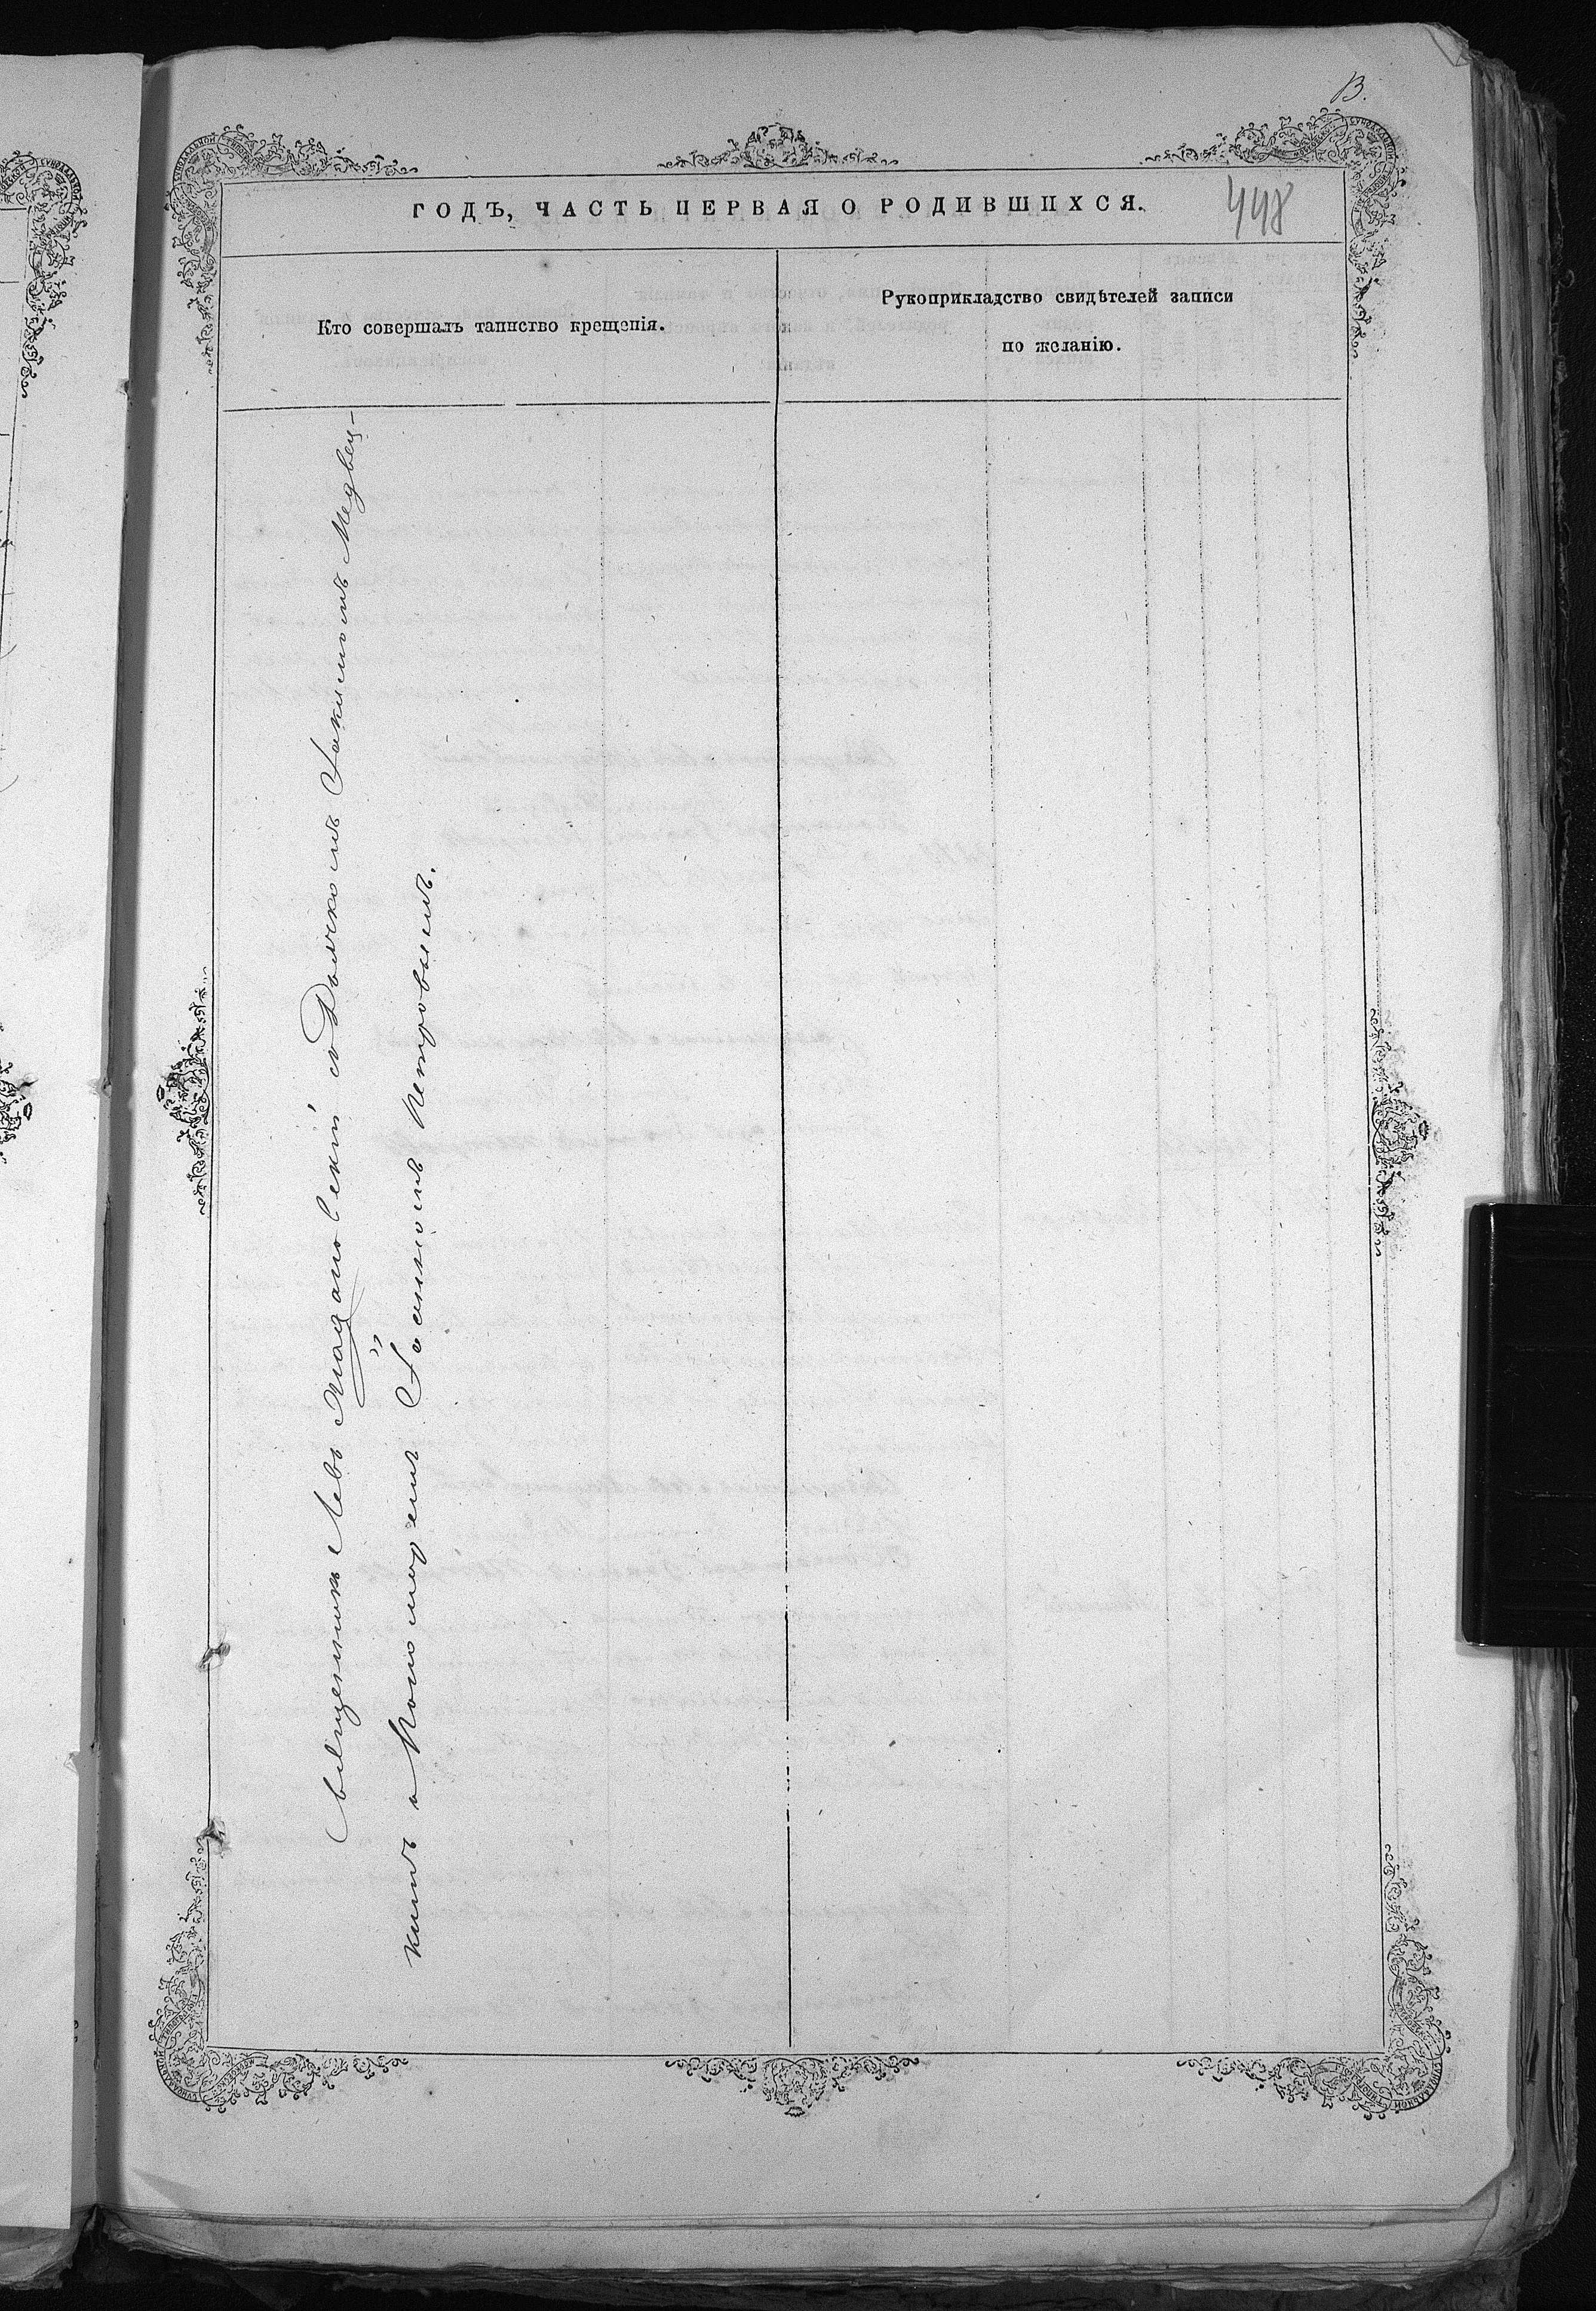 В.
ГОДЪ, ЧАСТЬ ПЕРВАЯ О РОДИВШИХСЯ.
448
Кто совершалъ таинство крещенія.
Рукоприкладство свидѣтелей записи
по желанію.
Священникъ Левъ съ Дьячкомъ Іакимомъ Медвец-
кимъ и Пономаремъ Іоанномъ Петровымъ.